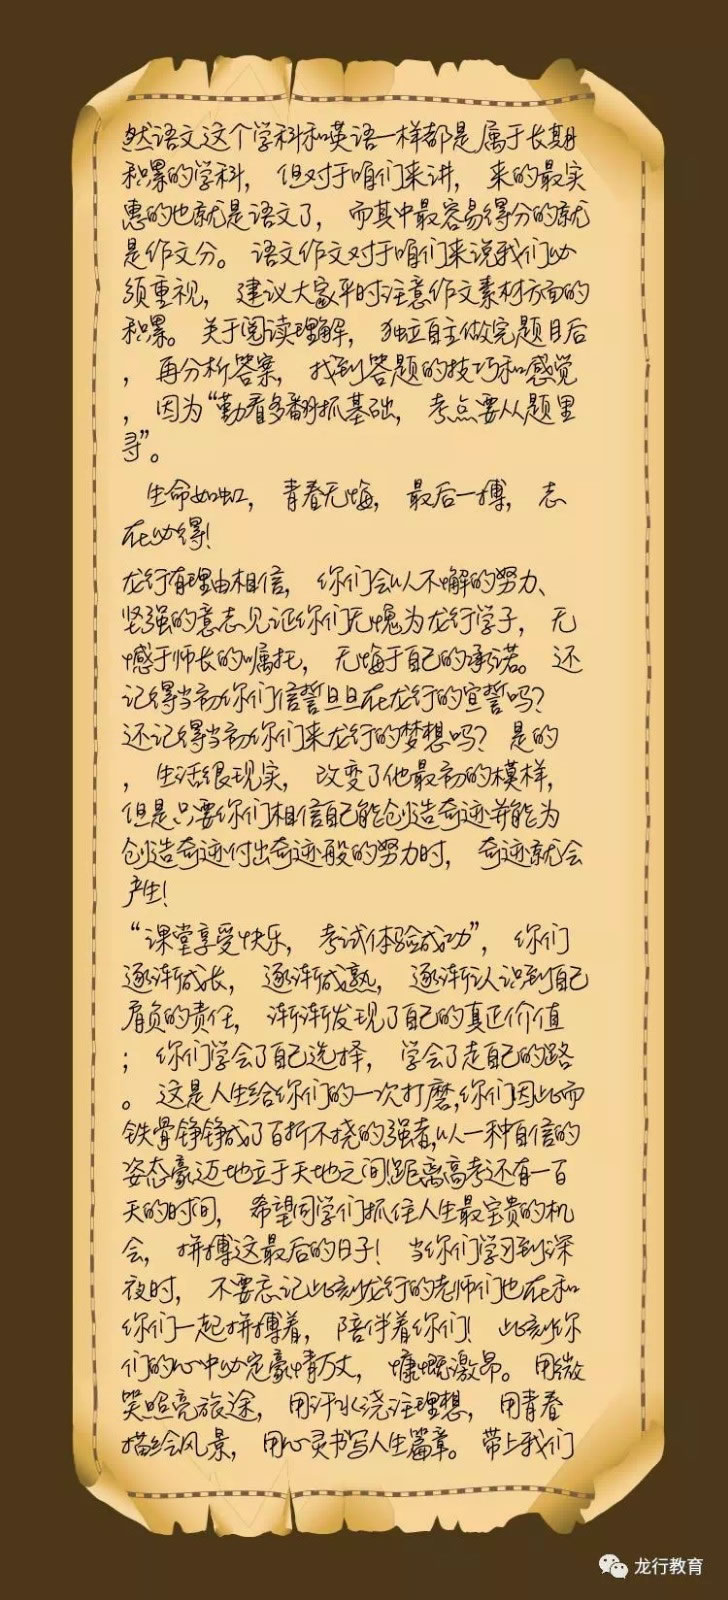 然语文这个学科和英语一样都是属于长期
积累的学科，但对于咱们来讲，来的最实
惠的也就是语文了，而其中最容易得分的就
是作文分。语文作文对于咱们来说我们必
须重视，建议大家平时注意作文素材方面的
积累。关于阅读理解，独立自主做完题目后
，再分析答案，找到答题的技巧和感觉
，因为“勤看多翻抓基础，考点要从题里
寻”。
生命如虹，青春无悔，最后一搏，志
在必得！
龙行有理由相信，你们会以不懈的努力、
坚强的意志见证你们无愧为龙行学子，无
憾于师长的嘱托，无悔于自己的承诺。还
记得当初你们信誓旦旦在龙行的宣誓吗？
还记得当初你们来龙行的梦想吗？是的
，生活很现实，改变了他最初的模样，
但是只要你们相信自己能创造奇迹并能为
创造奇迹付出奇迹般的努力时，奇迹就会
产生！
“课堂享受快乐，考试体验成功”，你们
逐渐成长，逐渐成熟，逐渐认识到自己
肩负的责任，渐渐发现了自己的真正价值
；你们学会了自己选择，学会了走自己的路
。这是人生给你们的一次打磨，你们因此而
铁骨铮铮成了百折不挠的强者，以一种自信的
姿态豪迈地立于天地之间！距离高考还有一百
天的时间，希望同学们抓住人生最宝贵的机
会，拼搏这最后的日子！当你们学习到深
夜时，不要忘记此刻龙行的老师们也在和
你们一起拼搏着，陪伴着你们！此刻你
们的心中必定豪情万丈，慷慨激昂。用微
笑照亮旅途，用汗水浇注理想，用青春
描绘风景，用心灵书写人生篇章。带上我们
龙行教育